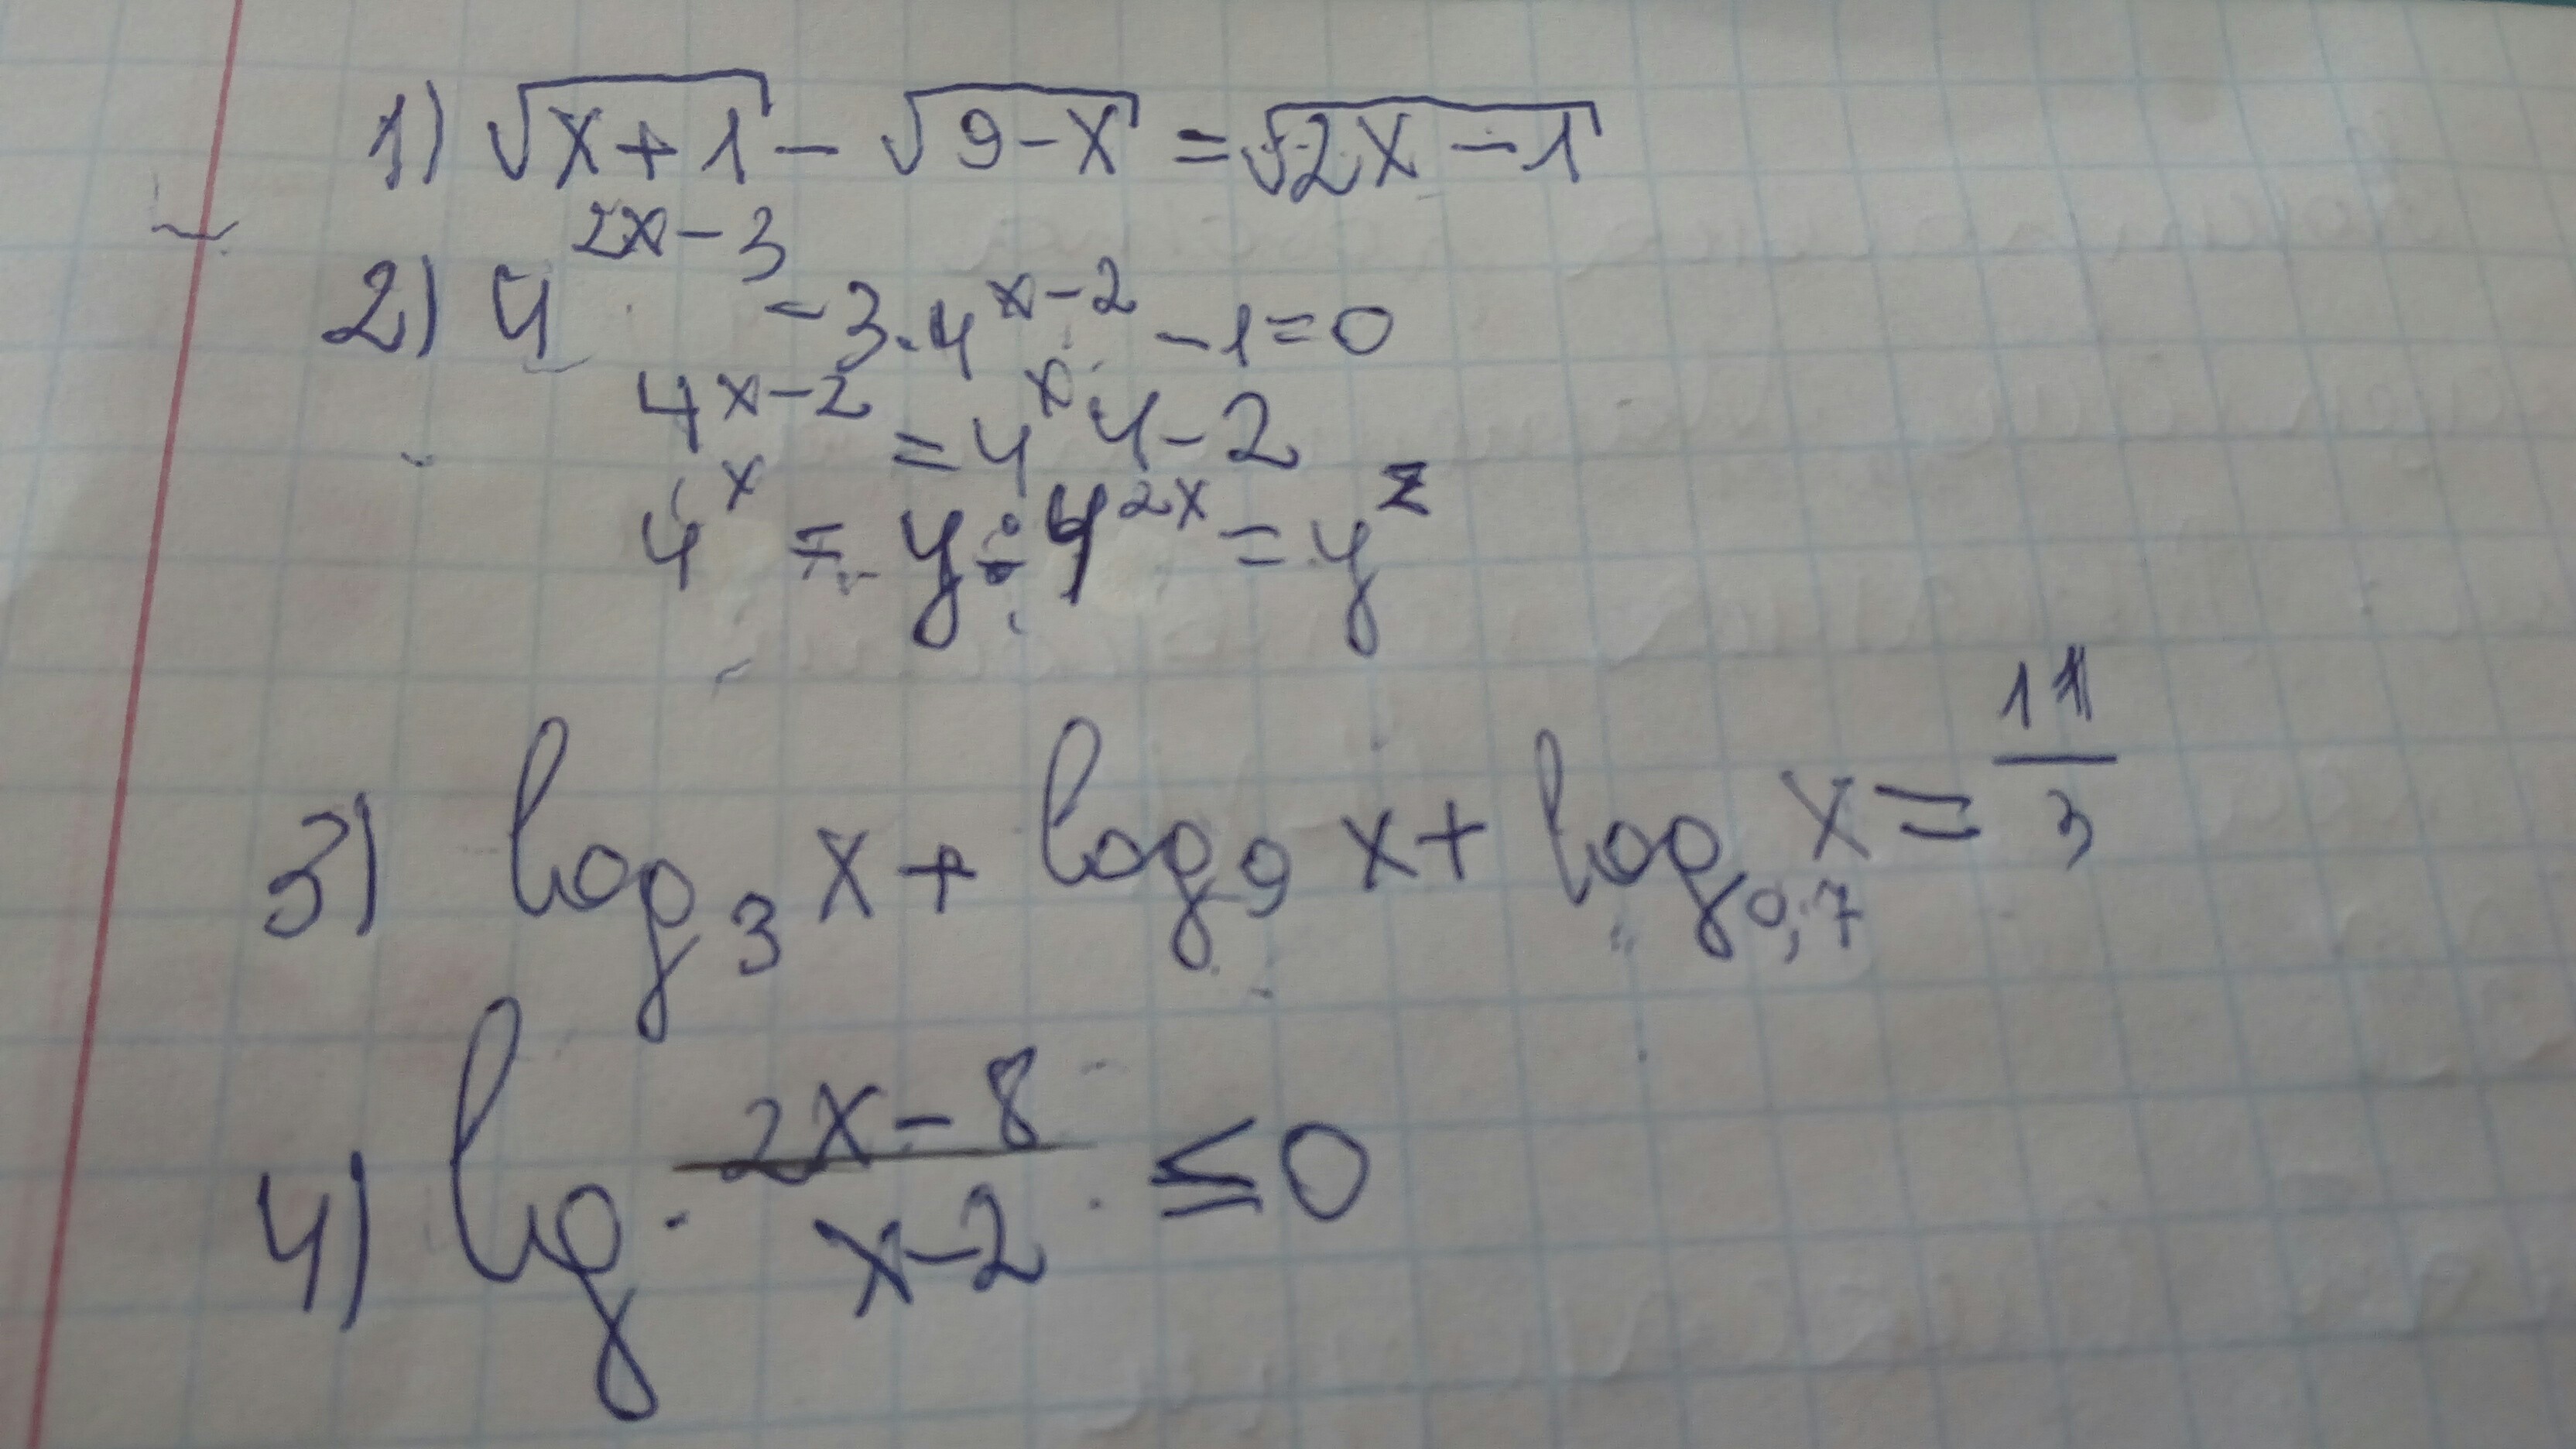 1) √(x+1) − √(9−x) = √(2x−1)
2) 4^(2x−3) − 3·4^(x−2) − 1 = 0
4^(x−2) = 4^x 4−2
4^x = y; 4^(2x) = y^2
3) log_3 x + log_9 x + log_0,7 x = 11/3
4) lg (2x−8)/(x−2) ≤ 0